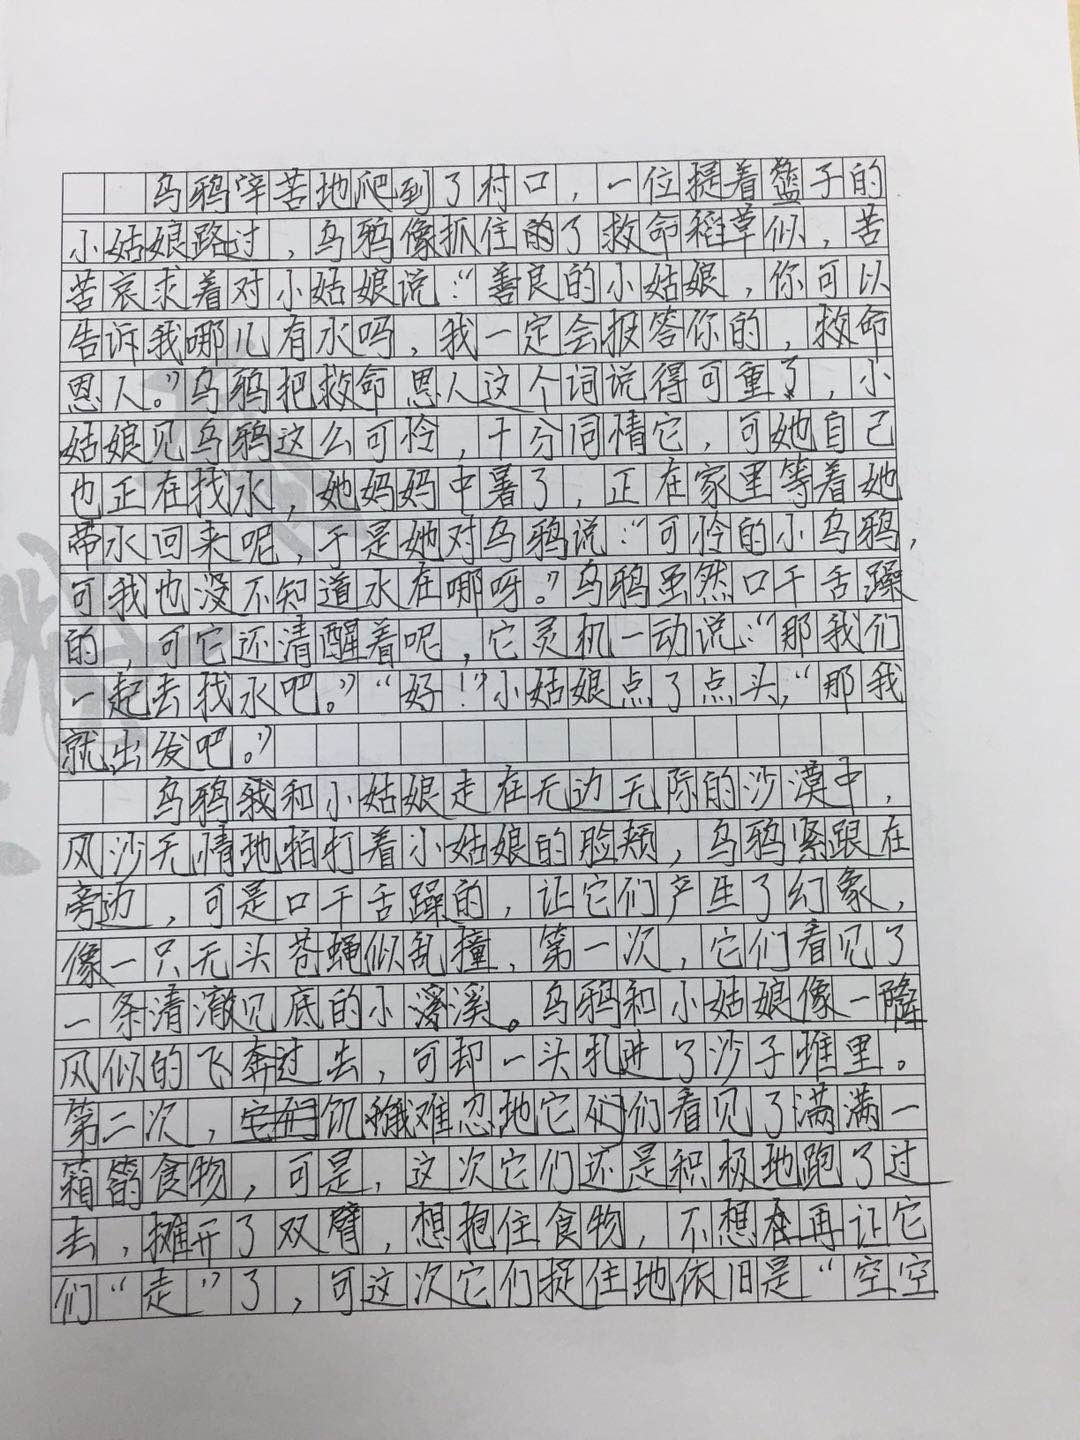 乌鸦辛苦地爬到了村口，一位提着篮子的
小姑娘路过，乌鸦像抓住的了救命稻草似，苦
苦哀求着对小姑娘说：“善良的小姑娘，你可以
告诉我哪儿有水吗，我一定会报答你的，救命
恩人。”乌鸦把救命恩人这个词说得可重了，小
姑娘见乌鸦这么可怜，十分同情它，可她自己
也正在找水，她妈妈中暑了，正在家里等着她
带水回来呢，于是她对乌鸦说：“可怜的小乌鸦，
可我也没不知道水在哪呀。”乌鸦虽然口干舌躁
的，可它还清醒着呢，它灵机一动说：“那我们
一起去找水吧。”“好！”小姑娘点了点头，“那我
就出发吧。”
乌鸦我和小姑娘走在无边无际的沙漠中，
风沙无情地拍打着小姑娘的脸颊，乌鸦紧跟在
旁边，可是口干舌躁的，让它们产生了幻象，
像一只无头苍蝇似乱撞，第一次，它们看见了
一条清澈见底的小溪。乌鸦和小姑娘像一阵
风似的飞奔过去，可却一头扎进了沙子堆里。
第二次，饥饿难忍地它们看见了满满一
箱食物，可是，这次它们还是积极地跑了过
去，摊开了双臂，想抱住食物，不想再让它
们“走”了，可这次它们捉住地依旧是“空空